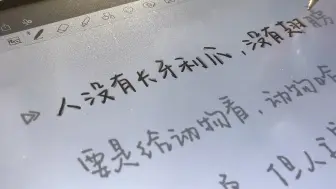 人没有长牙利爪，没有翅膀
要是给动物看，动物哈
，但人